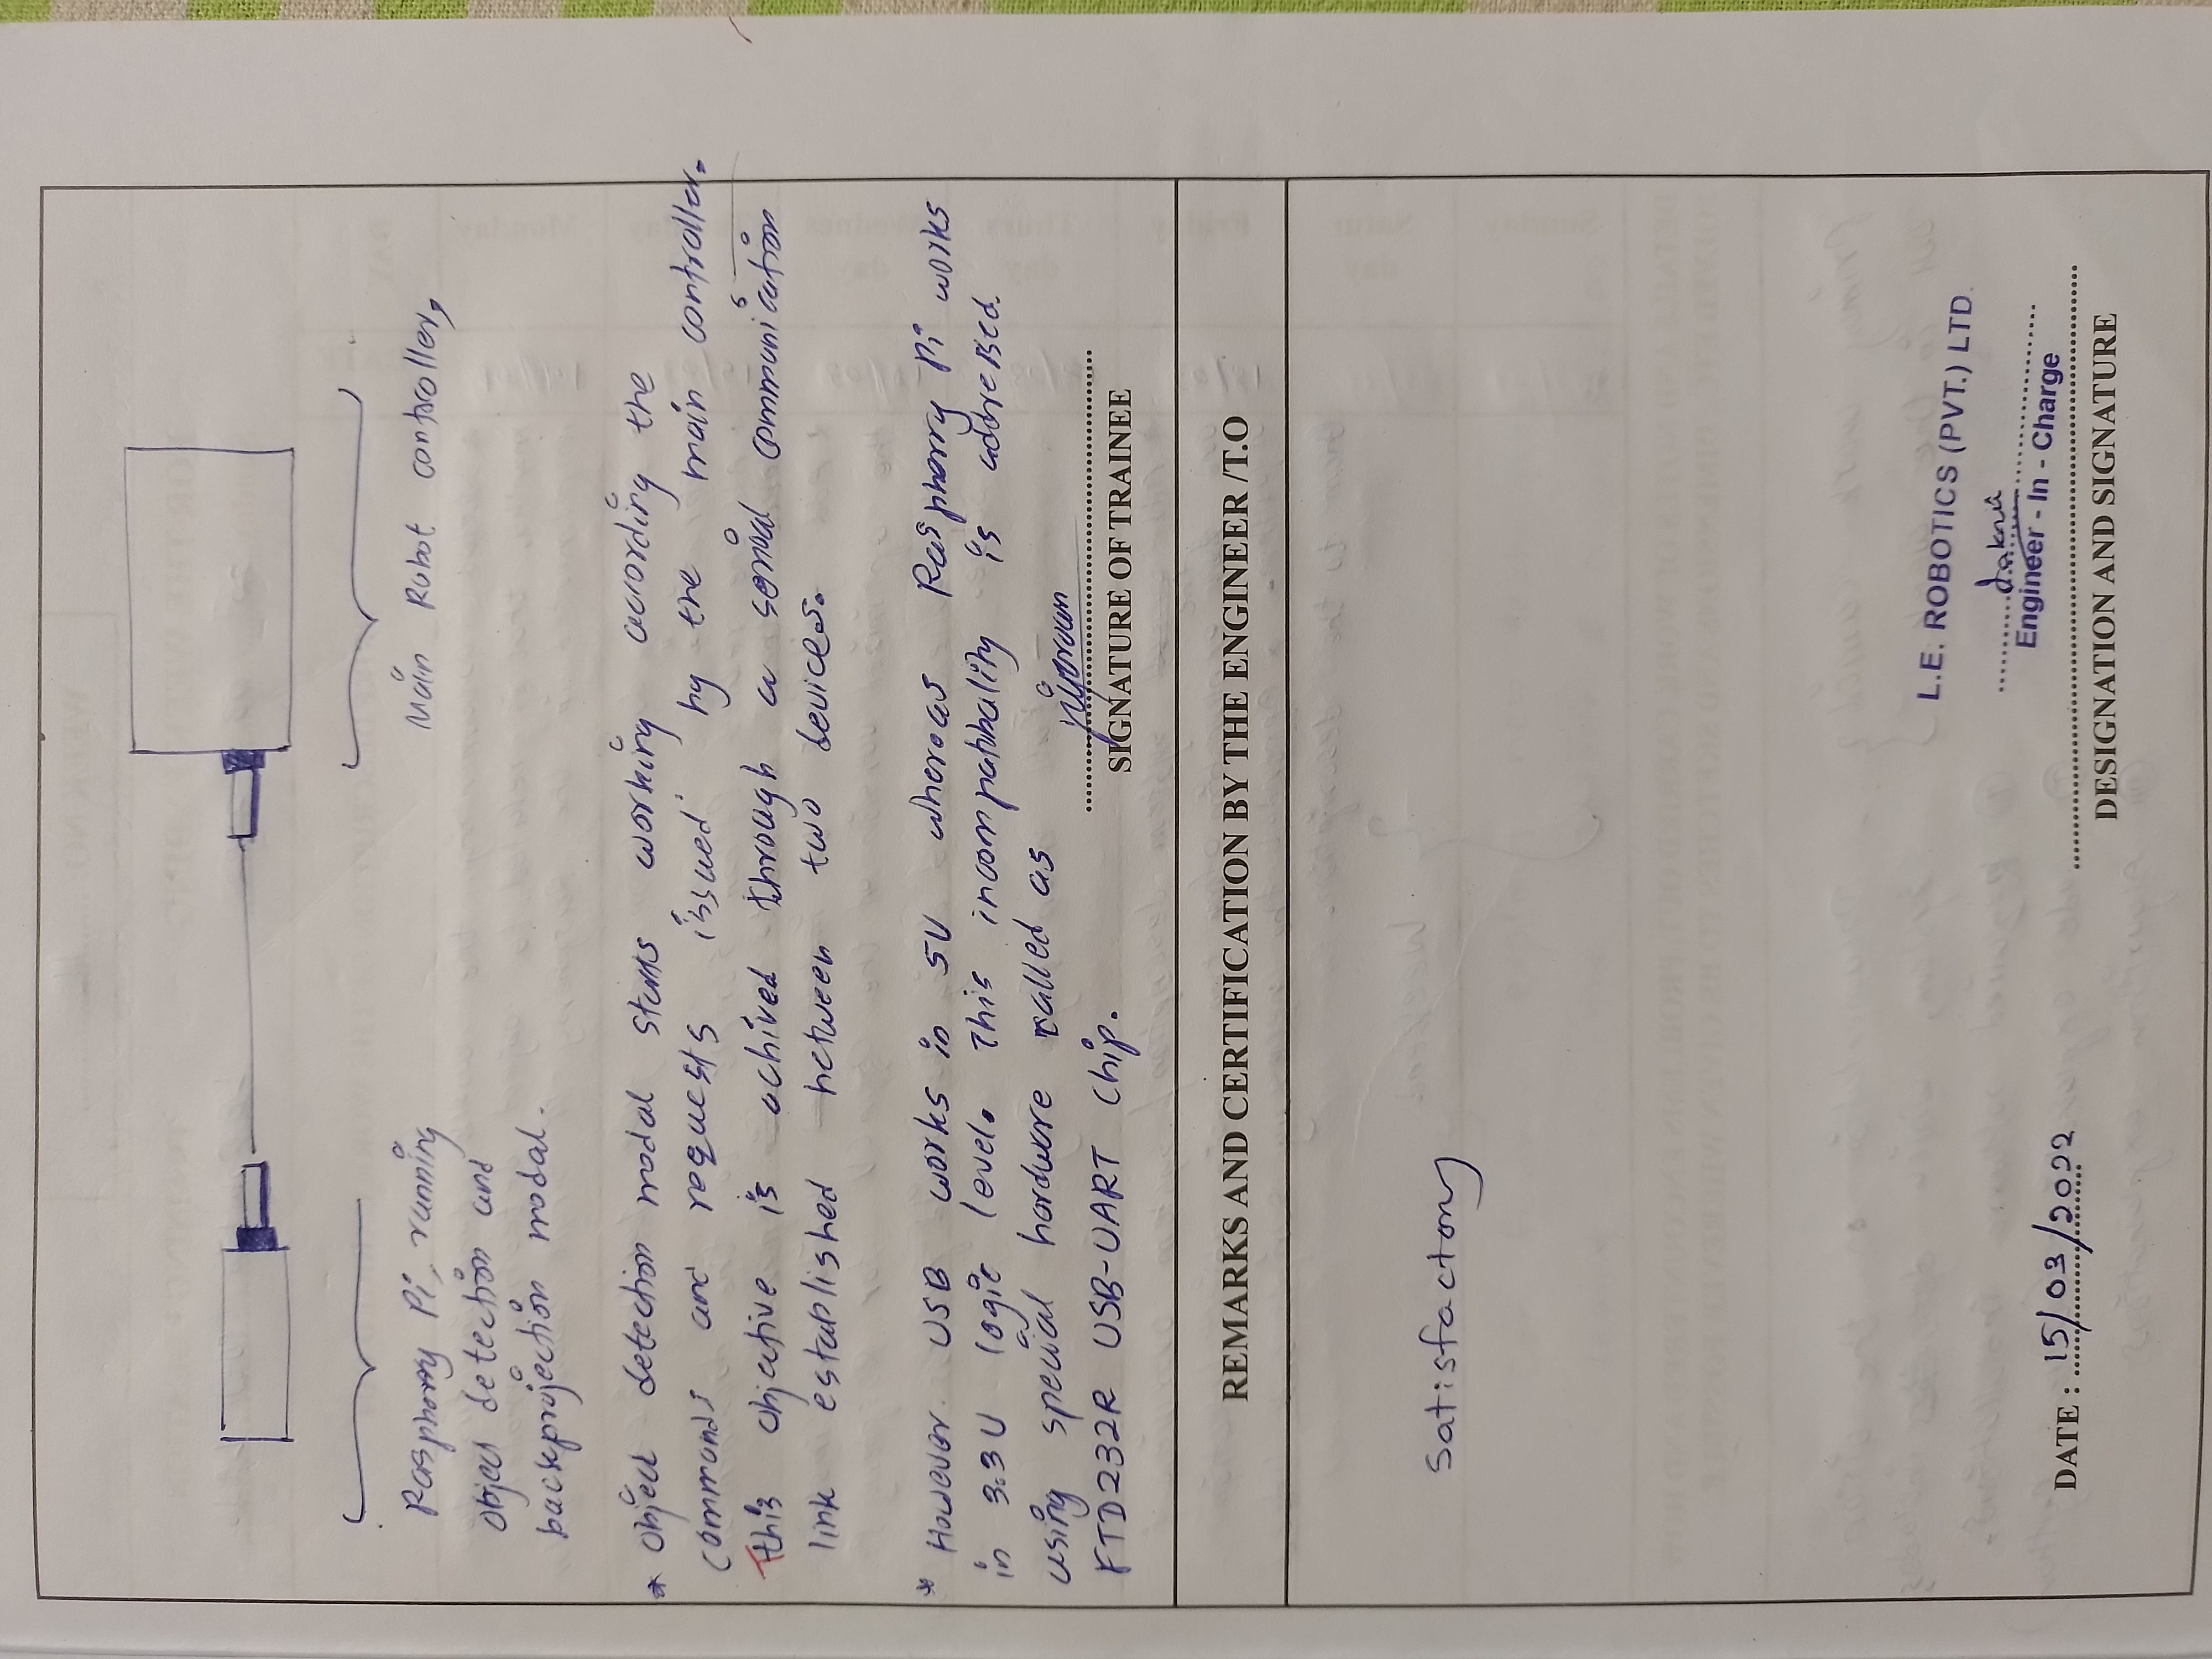 Raspberry Pi, running
object detection and
backprojection modal.
Main Robot controller,
* Object detection modal starts working according the
commands and requests issued by the main controller.
This objective is achived through a serial communication
link established between two devices.
* However USB works in 5V whereas Raspberry Pi works
in 3.3V logic level. This incompatibality is addressed.
using special hardware called as
FTD232R USB-UART Chip.
SIGNATURE OF TRAINEE
REMARKS AND CERTIFICATION BY THE ENGINEER /T.O
Satisfactory
L.E. ROBOTICS (PVT.) LTD.
Engineer - In - Charge
DATE : 15/03/2022
DESIGNATION AND SIGNATURE